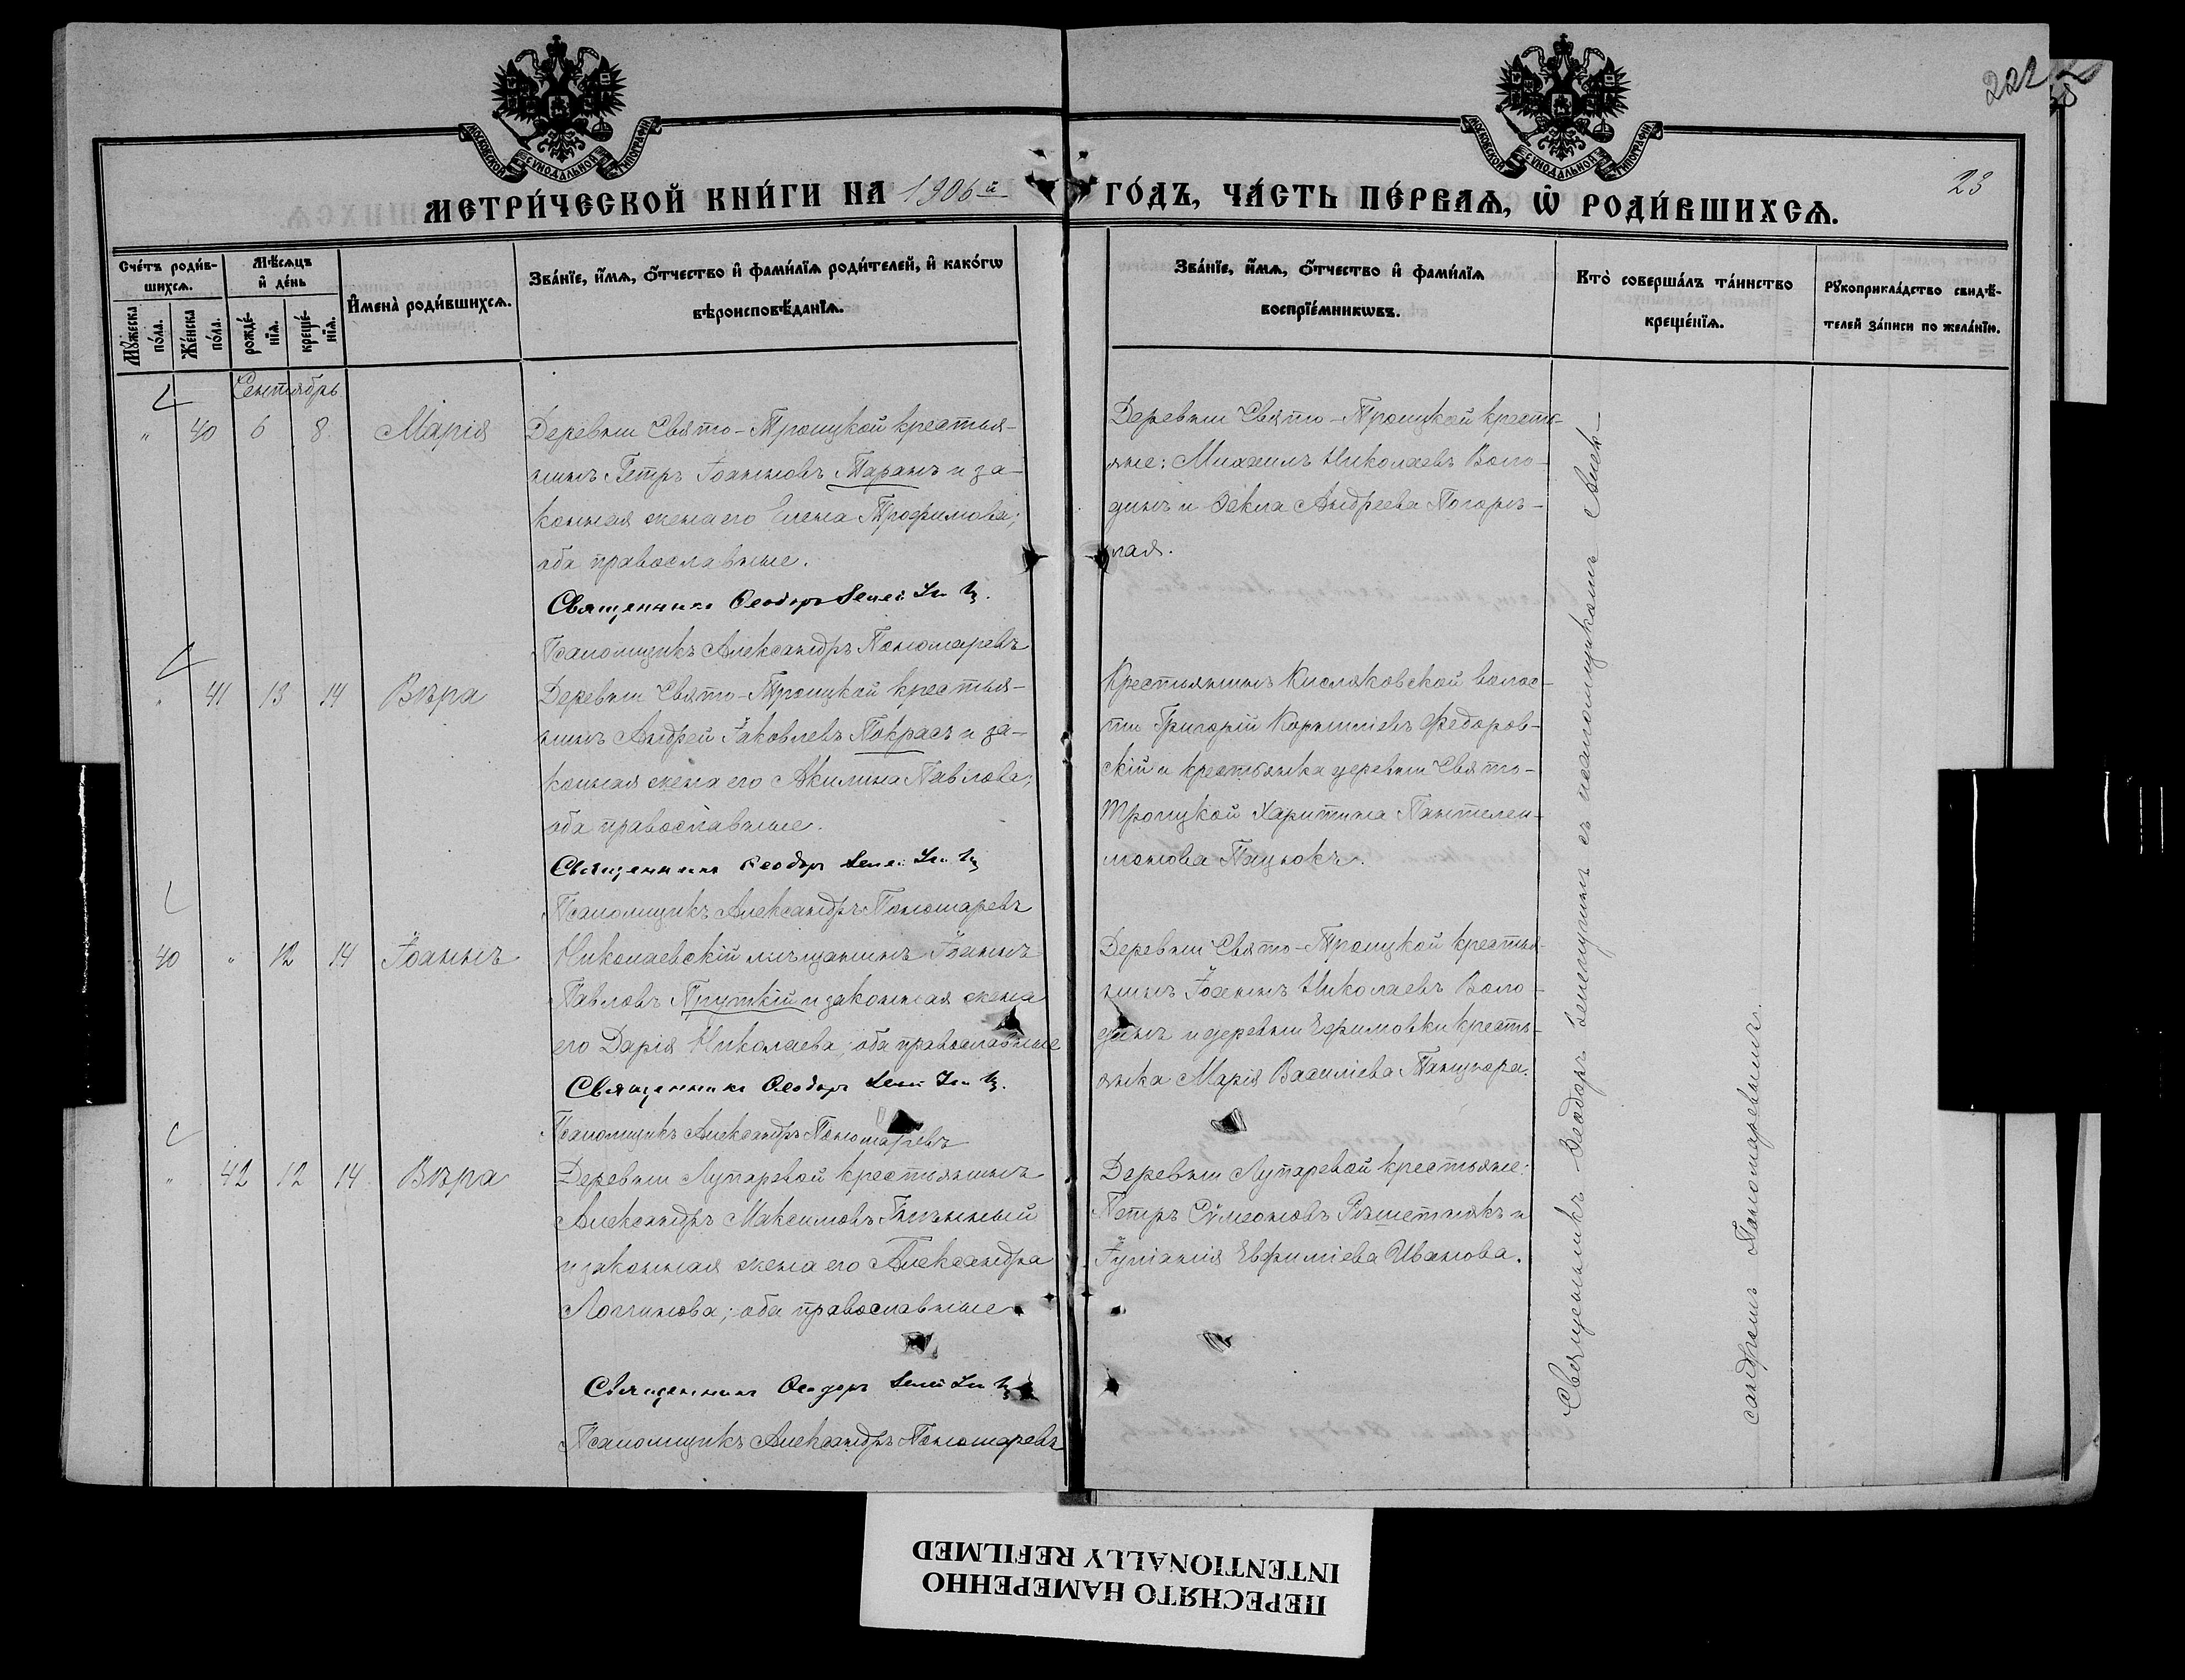 222
23
МОСКОВСКОЙ СѴНОДАЛЬНОЙ ТИПОГРАФІИ
МОСКОВСКОЙ СѴНОДАЛЬНОЙ ТИПОГРАФІИ
МЕТРИ́ЧЕСКОЙ КНИ́ГИ НА 1906й ГО́ДЪ, ЧА́СТЬ ПЕ́РВАѦ, Ѽ РОДИ́ВШИХСѦ.
Сче́тъ роди́в-
шихсѧ.
Мꙋ́жеска по́ла.
Же́нска по́ла.
Мѣ́сѧцъ
и҆ де́нь
рожде́-нїѧ.
креще́-нїѧ.
И҆мена̀ роди́вшихсѧ.
Зва́нїе, и҆́мѧ, ѻ҆́тчество и҆ фами́лїѧ роди́телей, и҆ како́гѡ
вѣроисповѣ́данїѧ.
Зва́нїе, и҆́мѧ, ѻ҆́тчество и҆ фами́лїѧ
воспрїе́мникѡвъ.
Кто̀ соверша́лъ та́инство
креще́нїѧ.
Рꙋкоприкла́дство свидѣ́-
телей за́писи по жела́нїю.
Сентябрь
" 40 6 8 Марія
Деревни Свято-Троицкой крестья-
нинъ Петръ Іоанновъ Таранъ и за-
конная жена его Елена Трофимова;
оба православные.
Священникъ Ѳеодоръ
Псаломщикъ Александръ Пономаревъ
Деревни Свято-Троицкой кресть-
яне: Михаилъ Николаевъ Воло-
динъ и Ѳекла Андреева Погорѣ-
лая.
" 41 13 14 Вѣра
Деревни Свято-Троицкой крестья-
нинъ Андрей Іаковлевъ Покрасъ и за-
конная жена его Акилина Павлова;
оба православные.
Священникъ Ѳеодоръ
Псаломщикъ Александръ Пономаревъ
Крестьянинъ Кисляковской волос-
ти Григорій Корниліевъ Федоров-
скій и крестьянка деревни Свято-
Троицкой Харитина Пантелеи-
монова Пацюкъ.
40 " 12 14 Іоаннъ
Николаевскій мѣщанинъ Іоаннъ
Павловъ Пруткій и законная жена
его Дарія Николаева; оба православные
Священникъ Ѳеодоръ
Псаломщикъ Александръ Пономаревъ
Деревни Свято-Троицкой крестья-
нинъ Іоаннъ Николаевъ Воло-
динъ и деревни Ефимовки кресть-
янка Марія Василіева
" 42 12 14 Вѣра
Деревни Лупаревой крестьянинъ
Александръ Максимовъ
и законная жена его Александра
Логгинова; оба православные.
Священникъ Ѳеодоръ
Псаломщикъ Александръ Пономаревъ
Деревни Лупаревой крестьяне:
Петръ Сѵмеоновъ Рѣшетнякъ и
Іуліанія Евфиміева Иванова.
Священникъ Ѳеодоръ съ псаломщикомъ Алек-
сандромъ Пономаревымъ.
ПЕРЕСНЯТО НАМЕРЕННО
INTENTIONALLY REFILMED